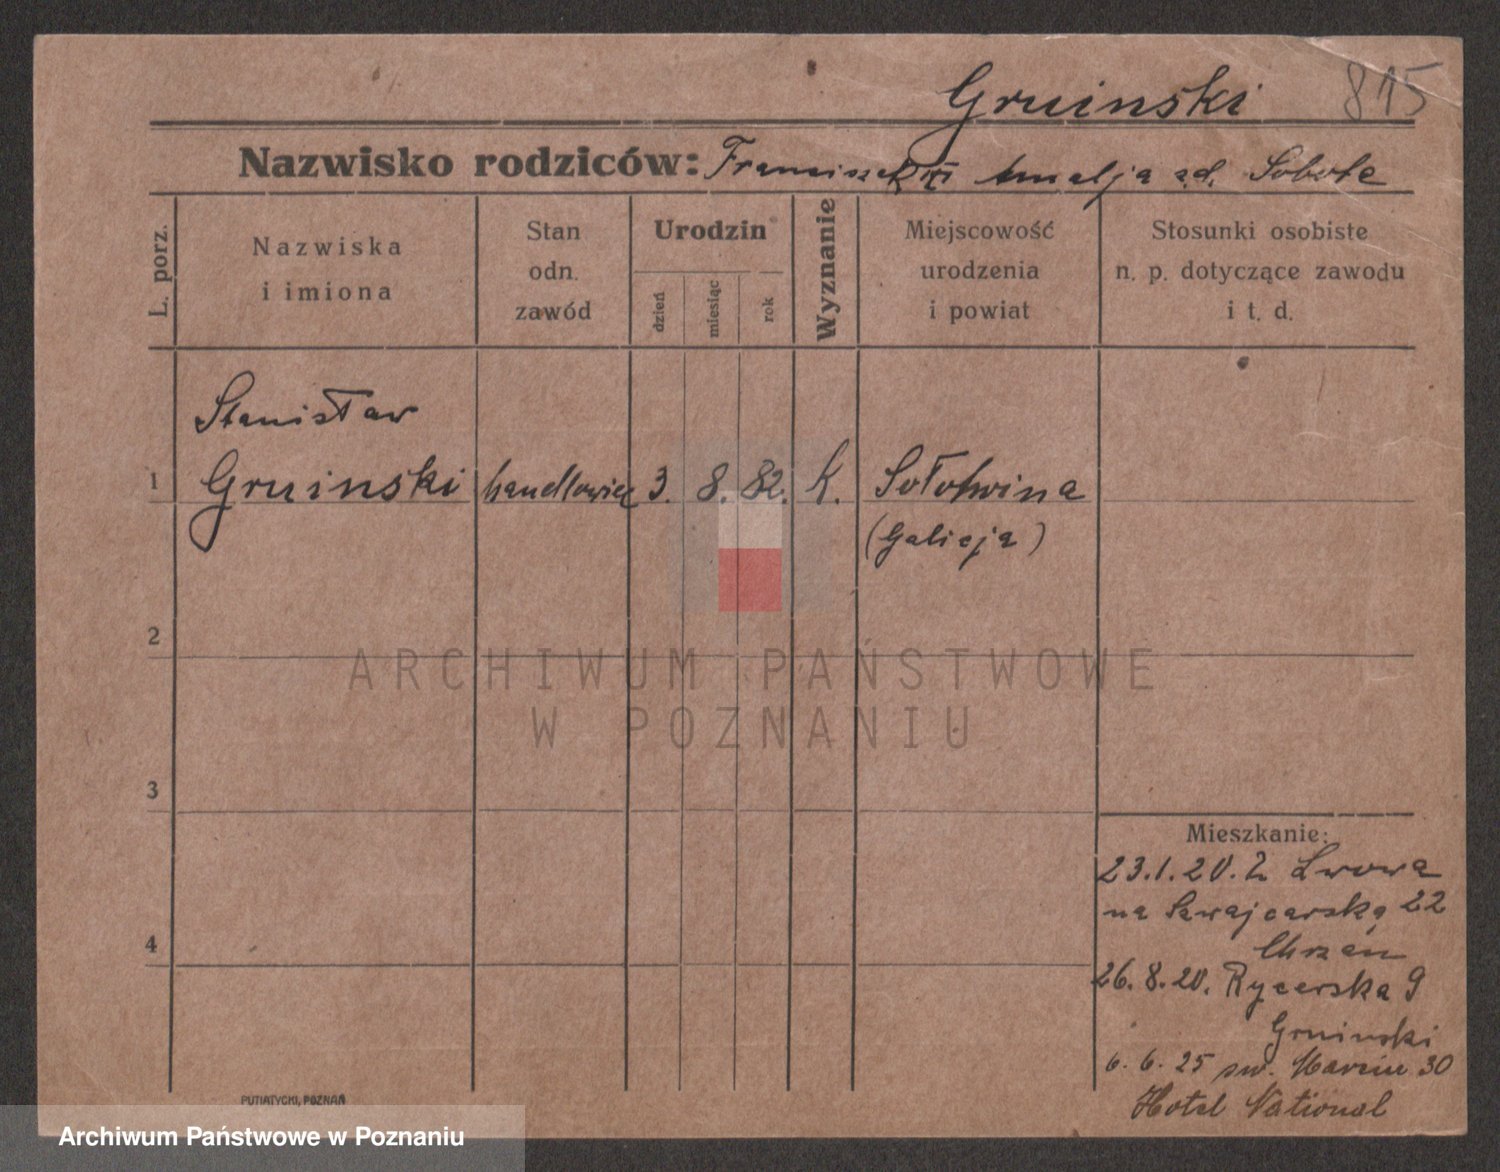 Gruinski 815
Nazwisko rodziców: Franciszek i Amalja z d. Sobota
L. porz.
Nazwiska
i imiona
Stan
odn.
zawód
Urodzin
dzień
miesiąc
rok
Wyznanie
Miejscowość
urodzenia
i powiat
Stosunki osobiste
n. p. dotyczące zawodu
i t. d.
Stanisław
1 Gruinski handlowiec 3. 8. 82. K. Sołotwina
(Galicja)
2
3
4
Mieszkanie:
23.1.20. Z Lwowa
na Szwajcarską 22
Chrzan
26.8.20. Rycerska 9
Gruinski
6.6.25 św. Marcin 30
Hotel National
PUTIATYCKI, POZNAŃ
ARCHIWUM PAŃSTWOWE
W POZNANIU
Archiwum Państwowe w Poznaniu